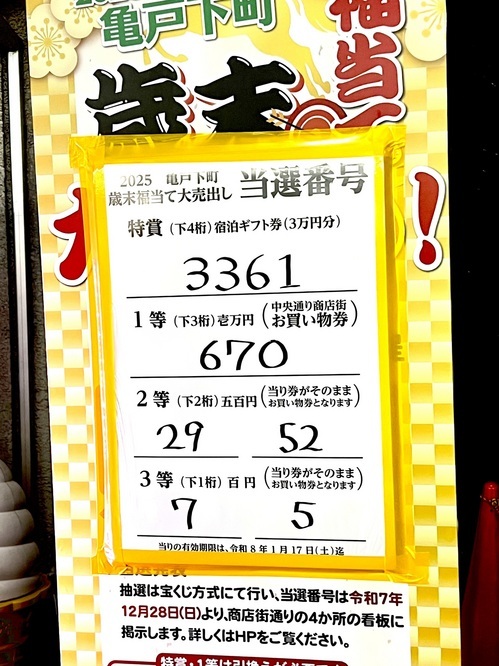 亀戸下町
福当て
歳末
！
2025 亀戸下町
歳末福当て大売出し 当選番号
特賞 (下4桁) 宿泊ギフト券(3万円分)
3361
1等 (下3桁) 壱万円 (中央通り商店街
お買い物券)
670
2等 (下2桁) 五百円 (当り券がそのまま
お買い物券となります)
29 52
3等 (下1桁) 百円 (当り券がそのまま
お買い物券となります)
7 5
当りの有効期限は、令和8年1月17日(土)迄
当選発表
抽選は宝くじ方式にて行い、当選番号は令和7年
12月28日(日)より、商店街通りの4か所の看板に
掲示します。詳しくはHPをご覧ください。